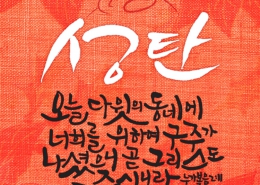 성탄
오늘 다윗의 동네에
너희를 위하여 구주가
나셨으니 곧 그리스도
주시니라
누가복음 2:11